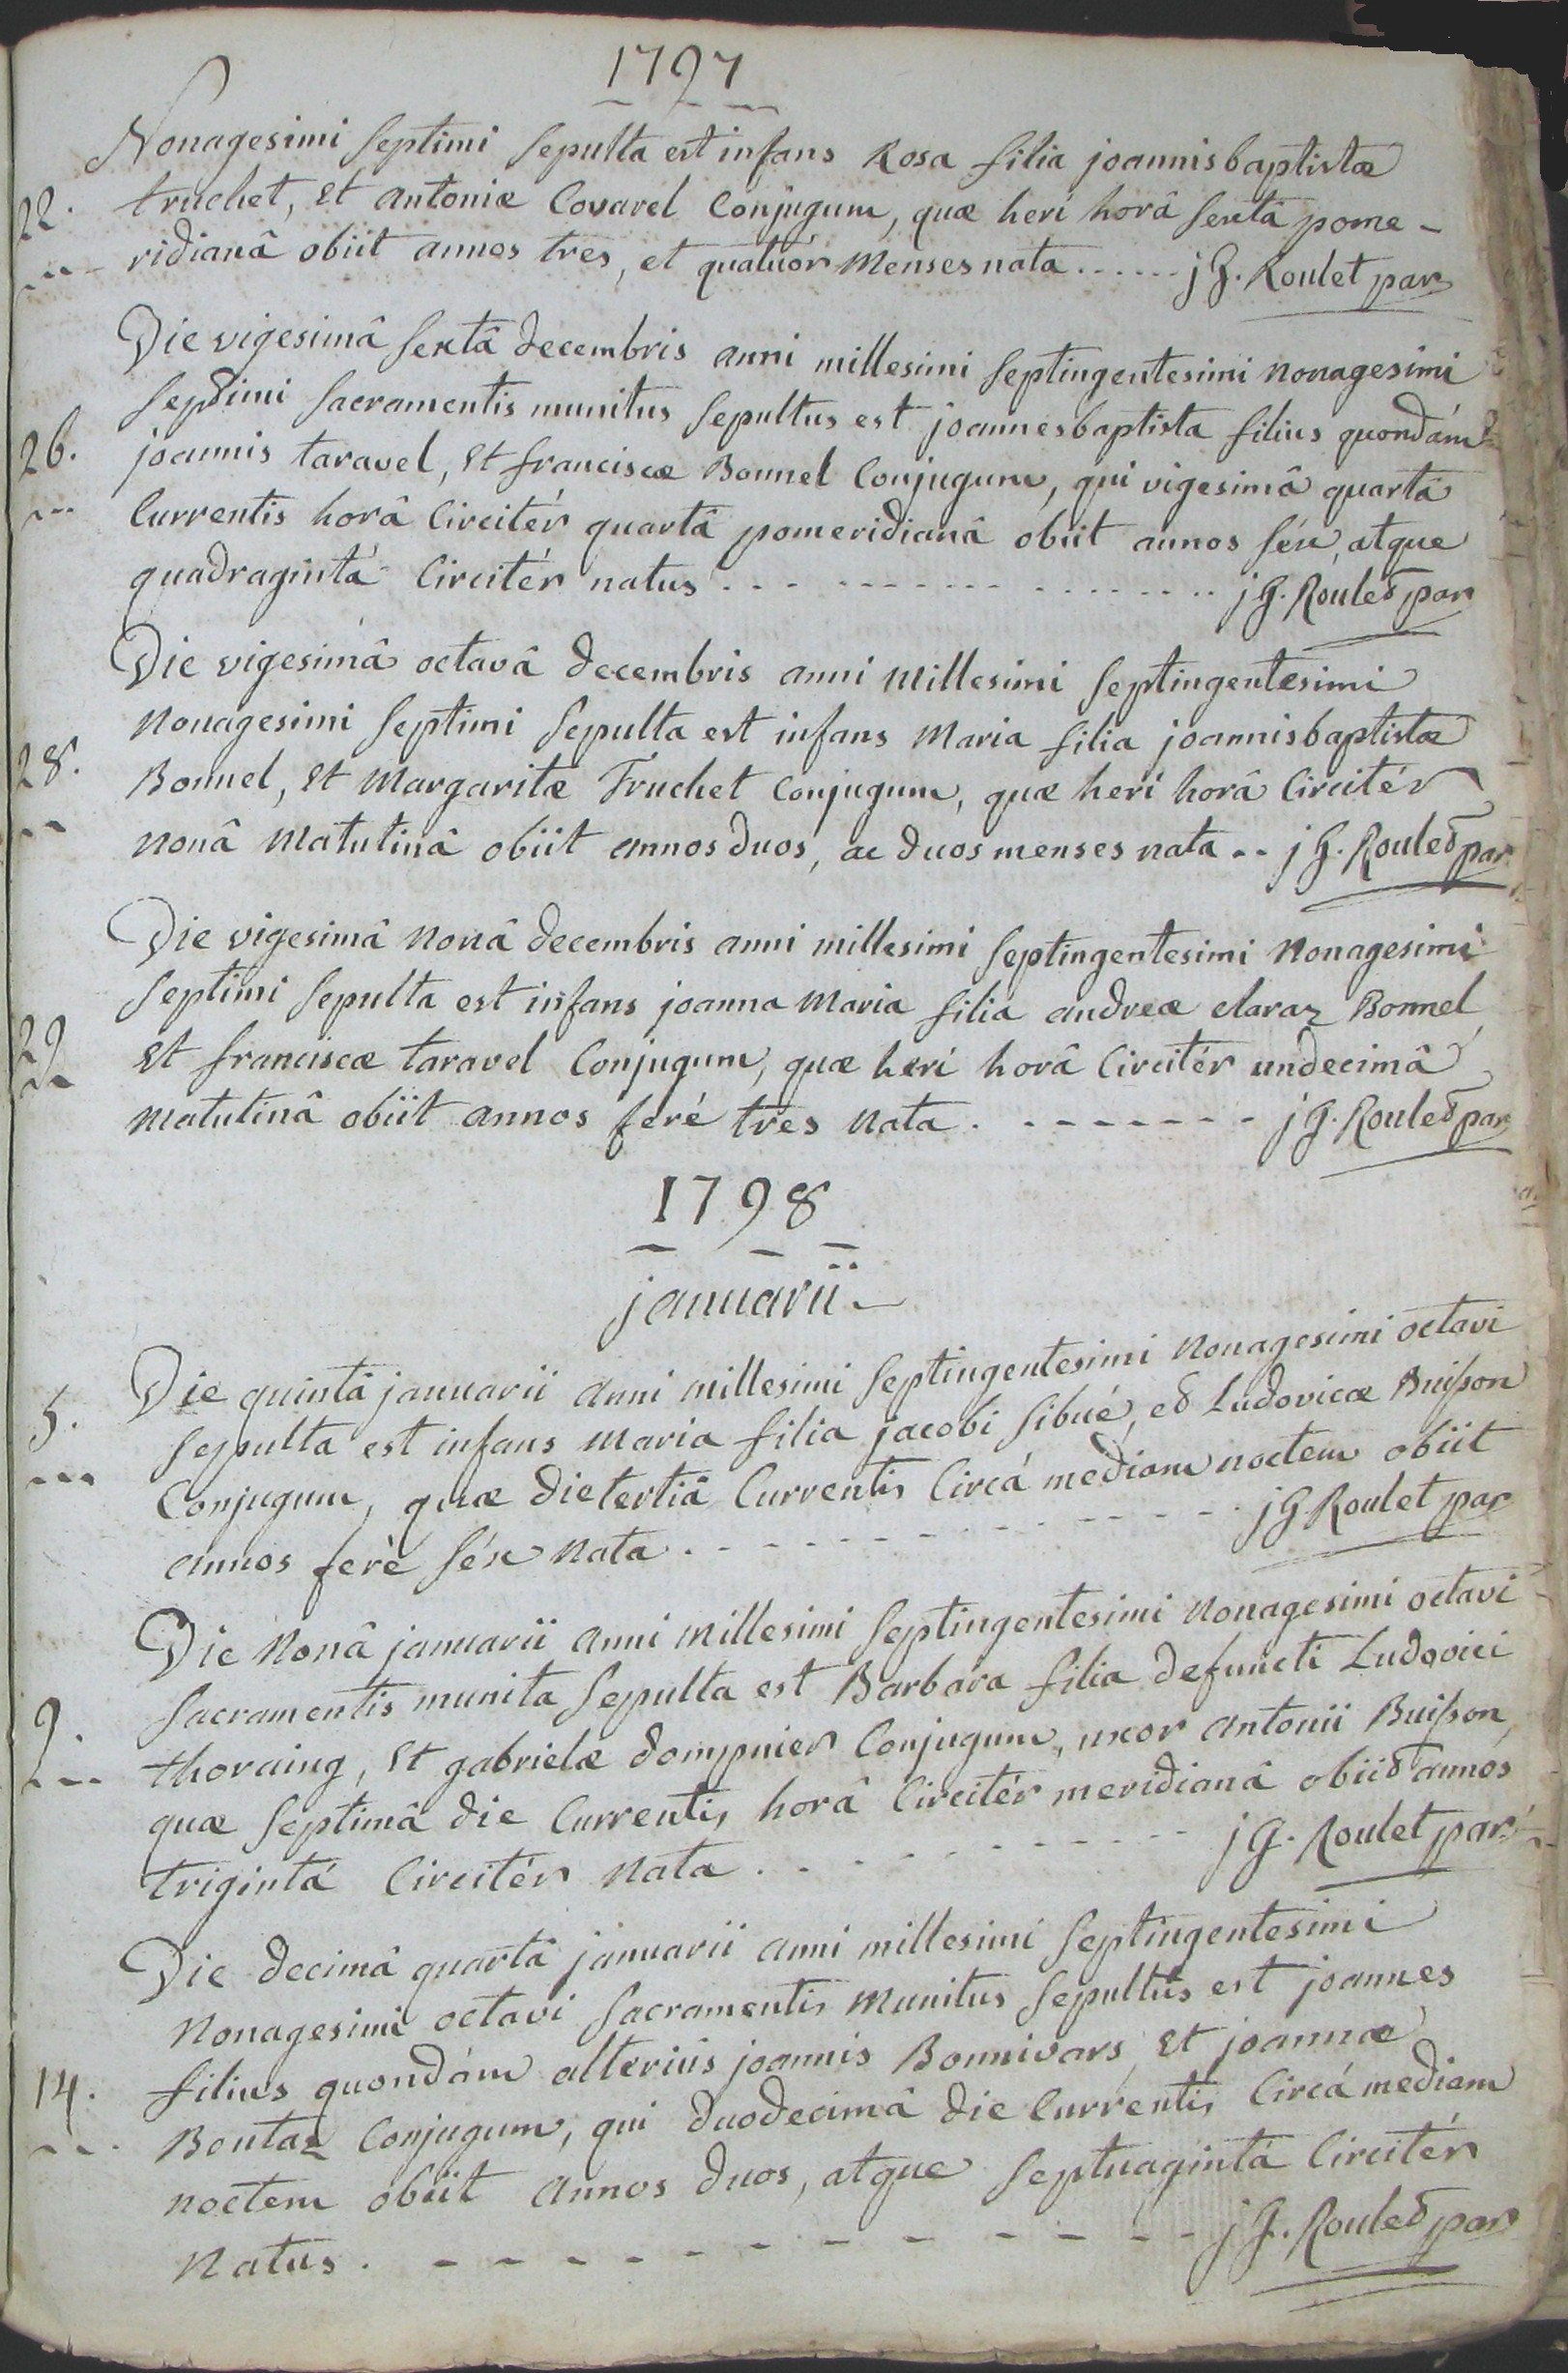 1797
Nonagesimi septimi sepulta est infans Rosa filia joannisbaptistæ
22. truchet, et antoniæ Covarel Conjugum, quæ heri horâ sextâ pome-
ridianâ obiit annos tres, et quatuór menses nata...... jG. Roulet par
Die vigesimâ sextâ decembris anni millesimi septingentesimi nonagesimi
septimi sacramentis munitus sepultus est joannesbaptista filius quondám
26. joannis taravel, et franciscæ Bonnel Conjugum, qui vigesimâ quartâ
Currentis horâ Circitér quartâ pomeridianâ obiit annos séx, atque
quadragintá Circitér natus . . . - - - - - - - . . . . . . . . jG. Roulet par
Die vigesimâ octavâ decembris anni millesimi septingentesimi
nonagesimi septimi sepulta est infans Maria filia joannisbaptistæ
28. Bonnel, et Margaritæ Truchet Conjugum, quæ heri horâ Circitér
nonâ matutinâ obiit annos duos, ac duos menses nata .. jG. Roulet par
Die vigesimâ nonâ decembris anni millesimi septingentesimi nonagesimi
septimi sepulta est infans joanna Maria filia andreæ claraz Bonnel,
29 et franciscæ taravel Conjugum, quæ heri horâ Circitér undecimâ
matutinâ obiit annos feré tres nata . - - - - - - - jG. Roulet par
1798
januarii
Die quintâ januarii anni millesimi septingentesimi nonagesimi octavi
5. sepulta est infans Maria filia jacobi sibué, et Ludovicæ Buisson
Conjugum, quæ die tertiâ Currentis Circá mediam noctem obiit
annos ferè séx nata . - - - - - - - - - - - jG Roulet par
Die nonâ januarii anni millesimi septingentesimi nonagesimi octavi
sacramentis munita sepulta est Barbara filia defuncti Ludovici
9. thoraing, et gabrielæ dompnier Conjugum, uxor antonii Buisson,
quæ septimâ die Currentis horâ Circitér meridianâ obiit annos
trigintá Circitér nata . - - - - - - - - - jG. Roulet par
Die decimâ quartâ januarii anni millesimi septingentesimi
nonagesimi octavi sacramentis munitus sepultus est joannes
14. filius quondám alterius joannis Bonnivars, et joannæ
Boutaz Conjugum, qui duodecimâ die Currentis Circá mediam
noctem obiit annos duos, atque septuagintá Circitér
natus . - - - - - - - - - - - - jG. Roulet par